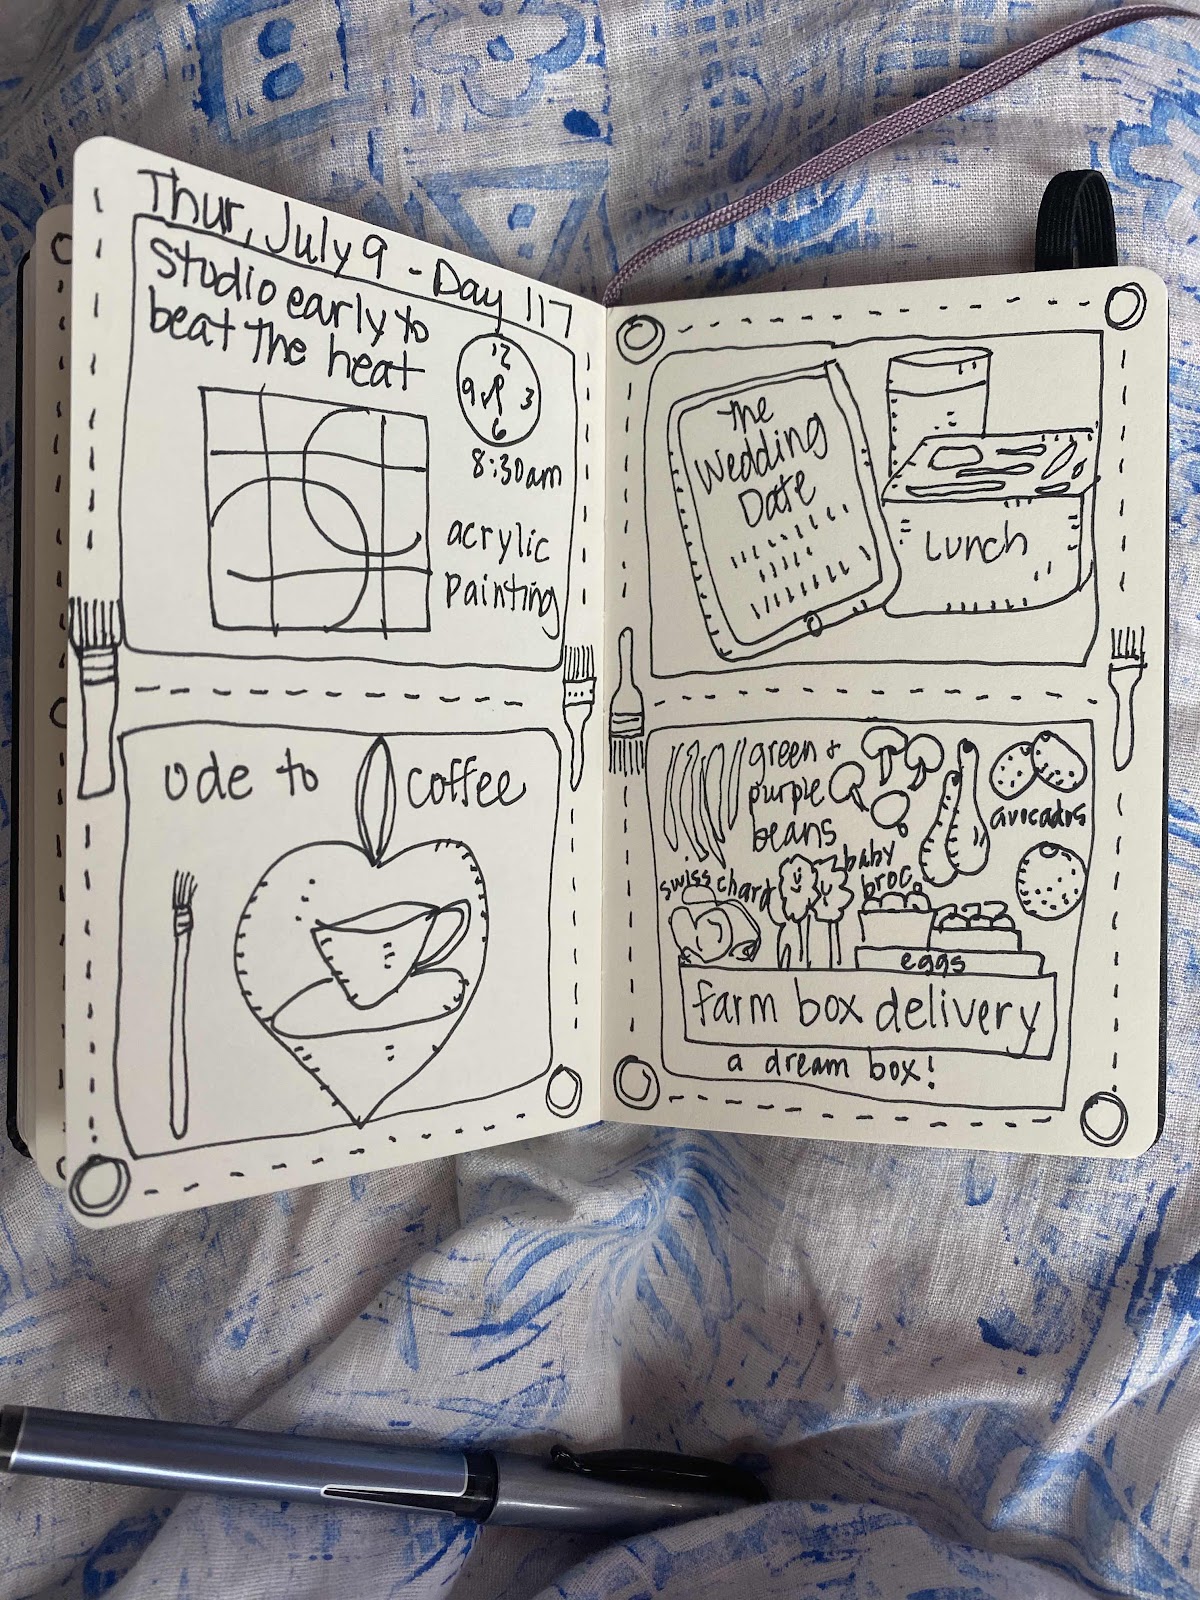 Thur, July 9 - Day 117
Studio early to
beat the heat
12
9 3
6
8:30am
acrylic
painting
Ode to coffee
The
Wedding
Date
Lunch
green +
purple
beans
avocados
swiss chard
baby
broc
eggs
farm box delivery
a dream box!